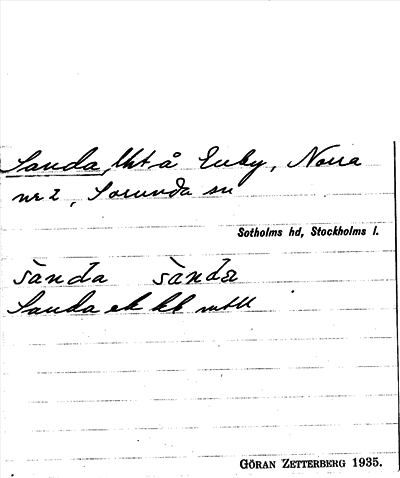 Sanda, lht å Enby, Norra
nr 2, Sorunda sn
Sotholms hd, Stockholms l.
sànda sàndα
Sanda ek kk mtl
GÖRAN ZETTERBERG 1935.